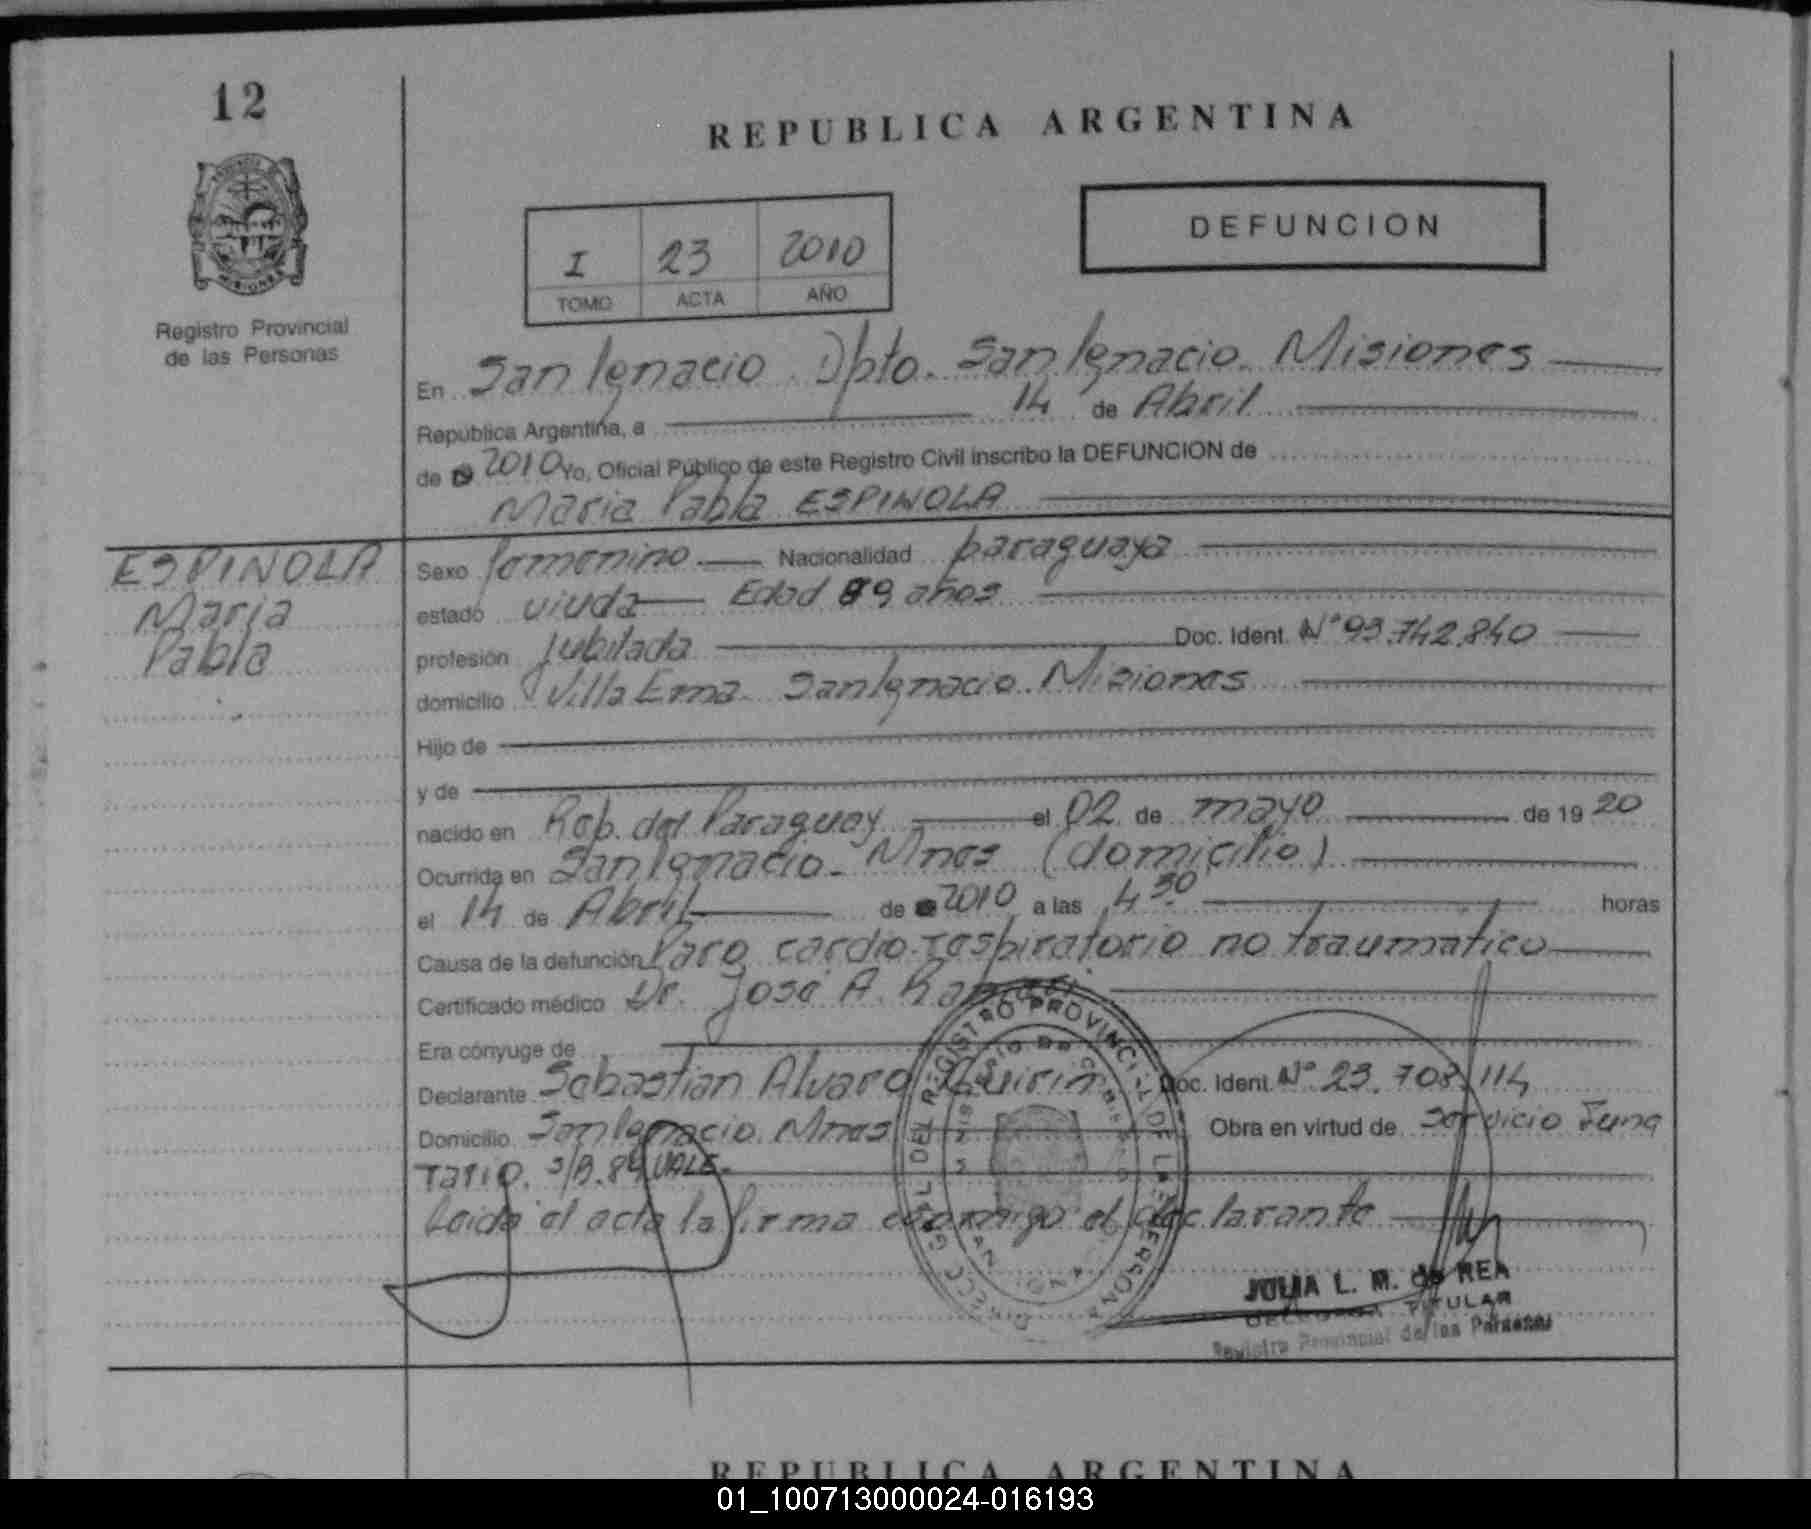 12
REPUBLICA ARGENTINA
DEFUNCION
I 23 2010
TOMO ACTA AÑO
Registro Provincial
de las Personas
En San Ignacio Dpto. San Ignacio. Misiones
República Argentina, a 14 de Abril
de 19 2010 Yo, Oficial Público de este Registro Civil inscribo la DEFUNCION de
Maria Pabla ESPINOLA
ESPINOLA
Maria
Pabla
Sexo femenino Nacionalidad paraguaya
estado viuda Edad 89 años
profesión jubilada Doc. Ident. Nº 93.742.840
domicilio Villa Ema. San Ignacio. Misiones
Hijo de
y de
nacido en Rep. del Paraguay el 02 de mayo de 19 20
Ocurrida en San Ignacio. Mnes (domicilio)
el 14 de Abril de 2010 a las 4 30 horas
Causa de la defunción Paro cardio-respiratorio no traumatico
Certificado médico Dr. José A.
Era cónyuge de
Declarante Sebastian Alvaro Doc. Ident. Nº 23.708.114
Domicilio San Ignacio. Mnes Obra en virtud de Servicio Fune
rario. S/B. 89 VALE.
Leida el acta la firma conmigo el declarante
DIRECC GRAL DEL REGISTRO PROVINCIAL DE LAS PERSONAS
JULIA L. M. de REA
DELEGADA TITULAR
Registro Provincial de las Personas
REPUBLICA ARGENTINA
01_100713000024-016193